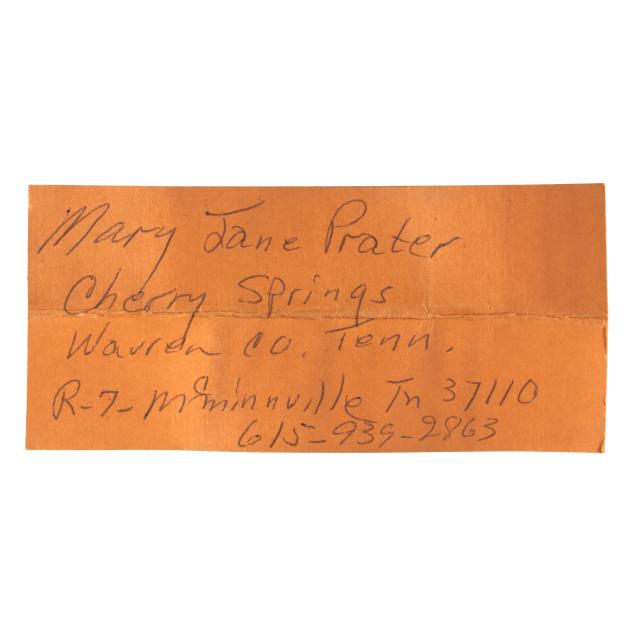 Mary Jane Prater
Cherry Springs
Warren Co. Tenn.
R-7- McMinnville Tn 37110
615-939-2863